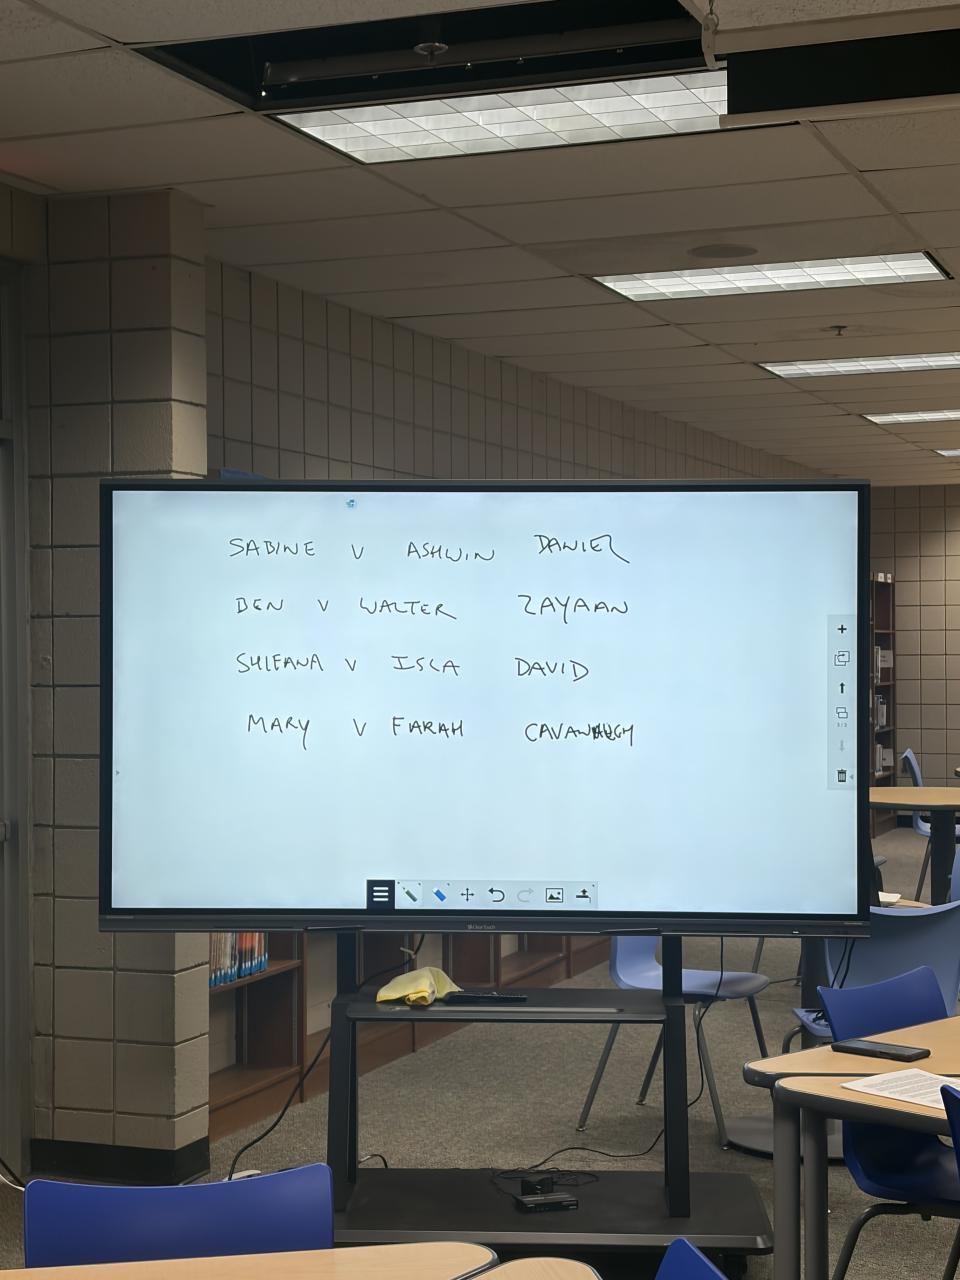 SABINE V ASHWIN DANIEL
BEN V WALTER ZAYAAN
V ISLA DAVID
MARY V FARAH CAVANAUGH
ClearTouch